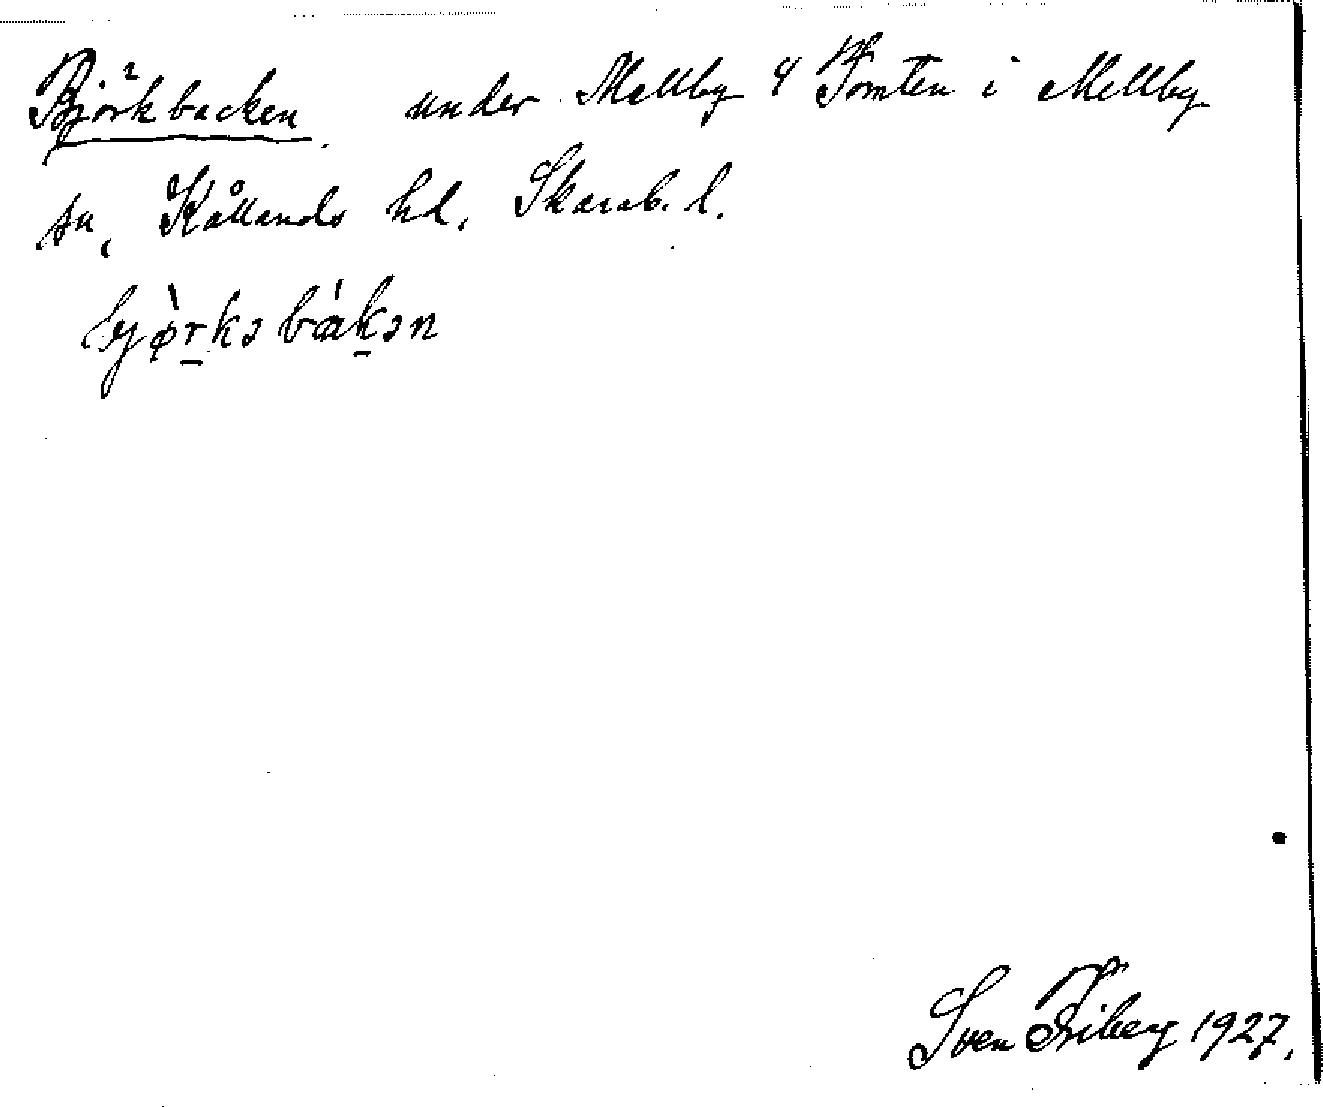 Björkbacken under Mellby 4 Tomten i Mellby
sn, Kållands hd, Skarab. l.
bjø̀r̲kə bák̲ən
Sven Friberg 1927.